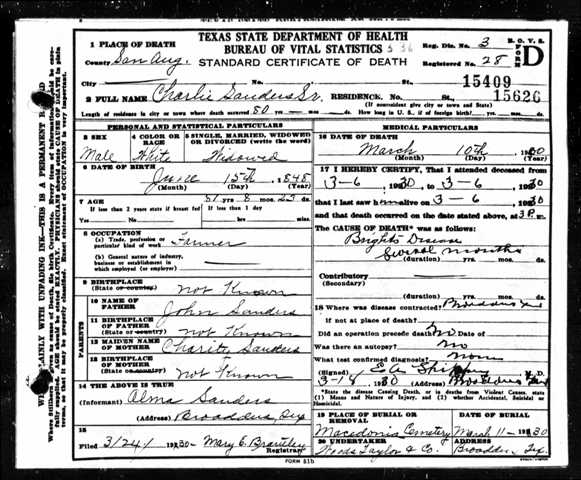 TEXAS STATE DEPARTMENT OF HEALTH
BUREAU OF VITAL STATISTICS
STANDARD CERTIFICATE OF DEATH
Reg. Dis. No. 3
B. O. V. S.
FORM D
Registered No. 28
1 PLACE OF DEATH
County San Aug.
City No. St.
15409
15626
2 FULL NAME Charlie Sanders Sr. RESIDENCE. No. St.
(If nonresident give city or town and State)
Length of residence in city or town where death occurred 80 yrs. mos. ds. How long in U. S., if of foreign birth? yrs. mos. ds.
PERSONAL AND STATISTICAL PARTICULARS
3 SEX
Male
4 COLOR OR RACE
White
5 SINGLE, MARRIED, WIDOWED OR DIVORCED (write the word)
Widowed
6 DATE OF BIRTH
June 15th 1848
(Month) (Day) (Year)
7 AGE 81 yrs. 8 mos. 23 ds.
If less than 2 years state if breast fed If less than 1 day
8 OCCUPATION
(a) Trade, profession or particular kind of work Farmer
(b) General nature of industry, business or establishment in which employed (or employer)
9 BIRTHPLACE
(State or country) Not Known
PARENTS
10 NAME OF FATHER John Sanders
11 BIRTHPLACE OF FATHER
(State or country) Not Known
12 MAIDEN NAME OF MOTHER Charity Sanders
13 BIRTHPLACE OF MOTHER
(State or country) Not Known
14 THE ABOVE IS TRUE
(Informant) Alma Sanders
(Address) Broaddus, Tex
15
Filed 3/24/1930 Mary E. Brantley
Registrar
MEDICAL PARTICULARS
16 DATE OF DEATH
March 10th, 1930
(Month) (Day) (Year)
17 I HEREBY CERTIFY, That I attended deceased from
3-6, 1930, to 3-6, 1930
that I last saw him alive on 3-6 1930
and that death occurred on the date stated above, at 3 P. m.
The CAUSE OF DEATH* was as follows:
Brights Disease
Several months
(duration) yrs. mos. ds.
Contributory
(Secondary)
(duration) yrs. mos. ds.
18 Where was disease contracted? Broaddus Tex
if not at place of death?
Did an operation precede death? No Date of
Was there an autopsy? No
What test confirmed diagnosis? None
(Signed) E A M. D.
3-18 1930 (Address) Broaddus Tex
*State the Disease Causing Death, or in deaths from Violent Causes, state (1) Means and Nature of Injury, and (2) whether Accidental, Suicidal or Homicidal.
19 PLACE OF BURIAL OR REMOVAL
Macedonia Cemetery
DATE OF BURIAL
March 11- 1930
20 UNDERTAKER
Woods Taylor & Co.
ADDRESS
Broaddus, Tex.
FORM 51b